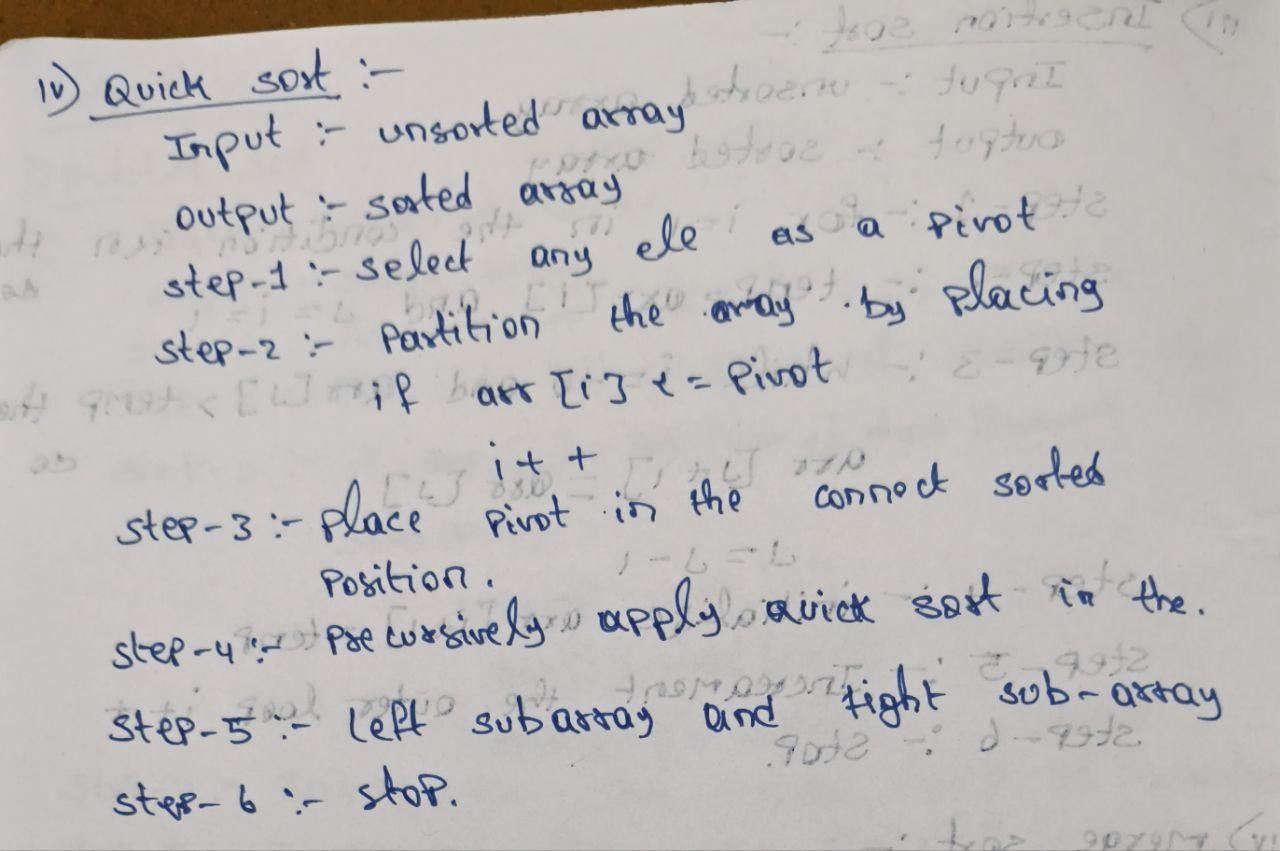 iv) Quick sort :-
Input :- unsorted array
output :- sorted array
step-1 :- select any ele as a pivot
step-2 :- Partition the array by placing
if arr [i] <= Pivot
i++
step-3 :- place pivot in the connect sorted
position.
step-4 :- precursively apply quick sort in the.
step-5 :- left subarray and right sub-array
step-6 :- stop.